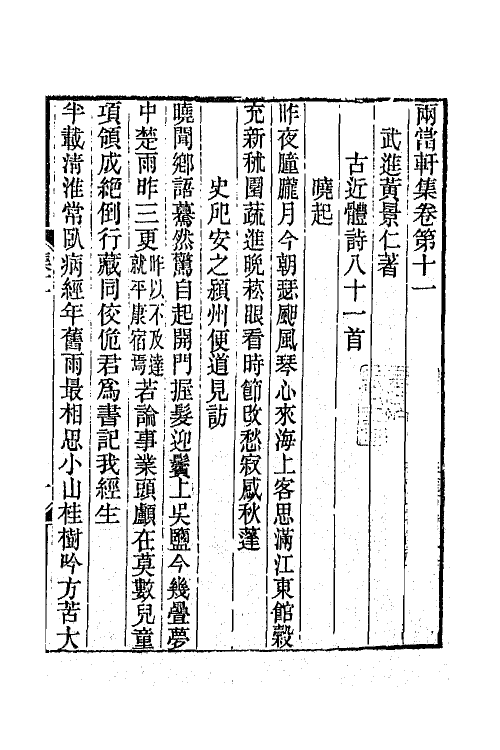 兩當軒集卷第十一
武進黃景仁著
古近體詩八十一首
曉起
昨夜朣朧月今朝瑟颼風琴心來海上客思滿江東館穀
充新秫園蔬進晚菘眼看時節改愁寂感秋蓬
史戺安之潁州便道見訪
曉聞鄉語驀然驚自起開門握髮迎鬢上吳鹽今幾疊夢
中楚雨昨三更昨以不及達就平康宿焉若論事業頭顱在莫數兒童
項領成絕倒行藏同佼佹君爲書記我經生
半載清淮常臥病經年舊雨最相思小山桂樹吟方苦大